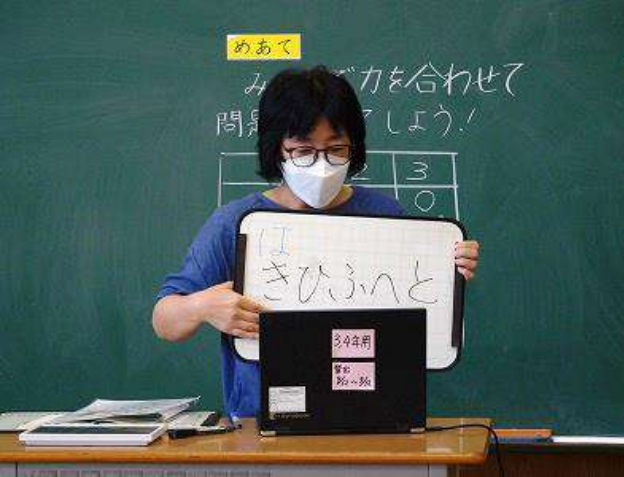 めあて
みん 力を合わせて
問題 しよう!
2 3
0
は
きひふへと
3,4年用